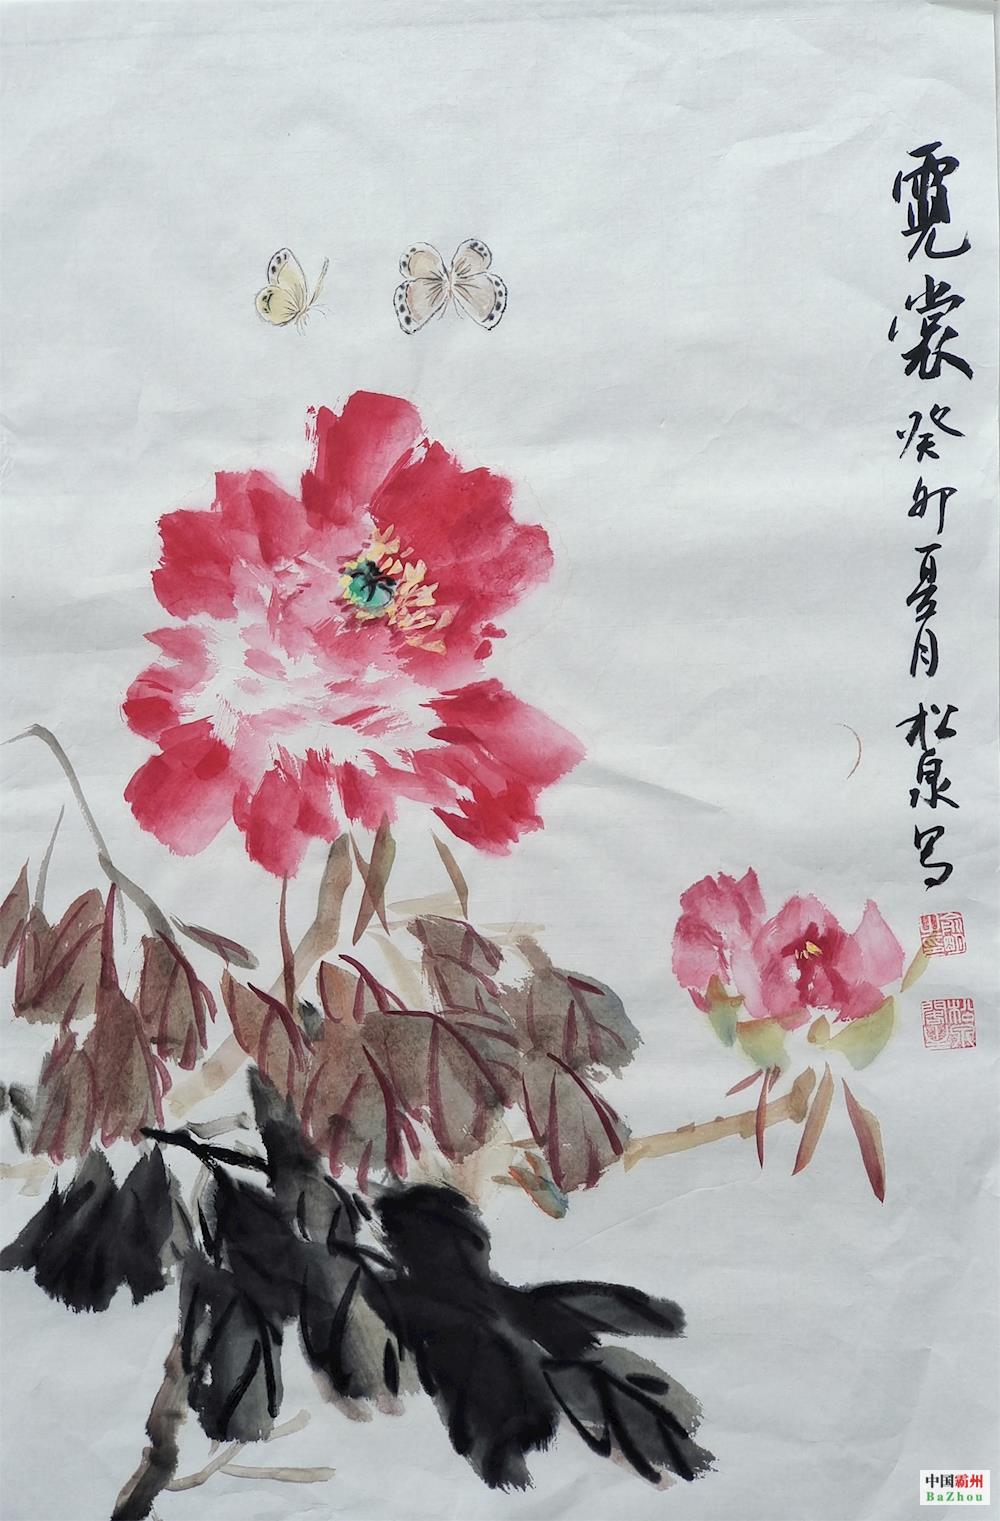 霓裳
癸卯夏月
松泉写
中国霸州
BaZhou